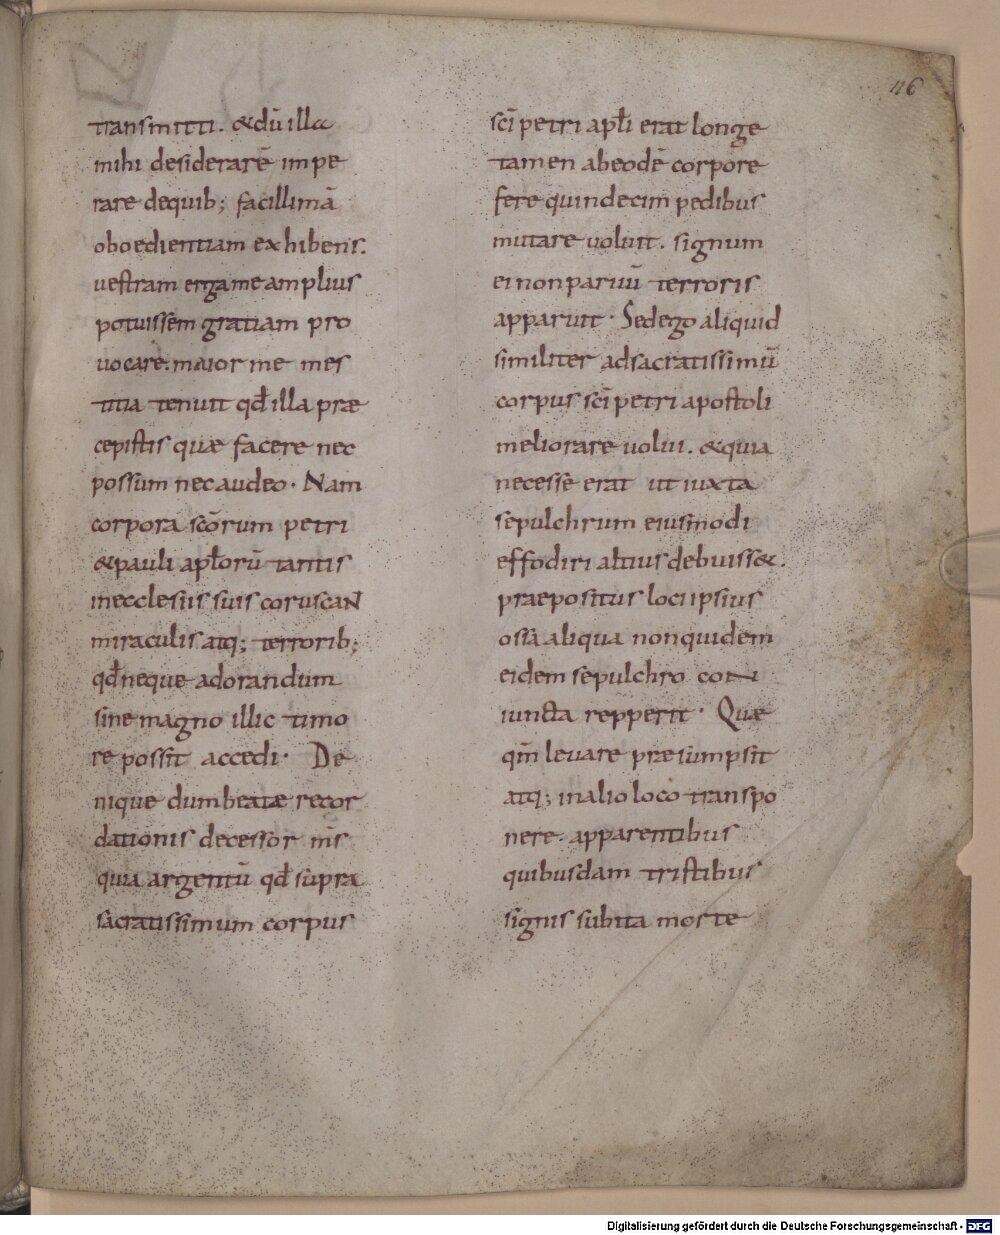 116
transmitti. &dū illa
mihi desiderarē impe
rare dequib; facillimā
oboedientiam exhibens.
uestram ergameamplius
potuissem gratiam pro
uocare. maior me mes
titia tenuit qđ illa præ
cepistis quæ facere nec
possum necaudeo· Nam
corpora scōrum petri
&pauli aplorū tantis
inecclesiis suis coruscaN
miraculis atq; terrorib;
qđneque adorandum
sine magno illic timo
re possit accedi· De
nique dum beatæ recor
dationis decessor nr̄s
quia argentū qđ supra
sacratissimum corpus
scī petri apłi erat longe
tamen abeodē corpore
fere quindecim pedibus
mutare uoluit. signum
ei non paruū terroris
apparuit· Sedego aliquid
similiter adsacratissimū
corpus scī petri apostoli
meliorare uolui. &quia
necesse erat ut iuxta
sepulchrum eiusmodi
effodiri altius debuiss&.
praepositus lociipsius
ossa aliqua nonquidem
eidem sepulchro coN
iuncta repperit· Quæ
qm̄ leuare præsumpsit
atq; inalio loco transpo
nere. apparentibus
quibusdam tristibus
signis subita morte
Digitalisierung gefördert durch die Deutsche Forschungsgemeinschaft - DFG